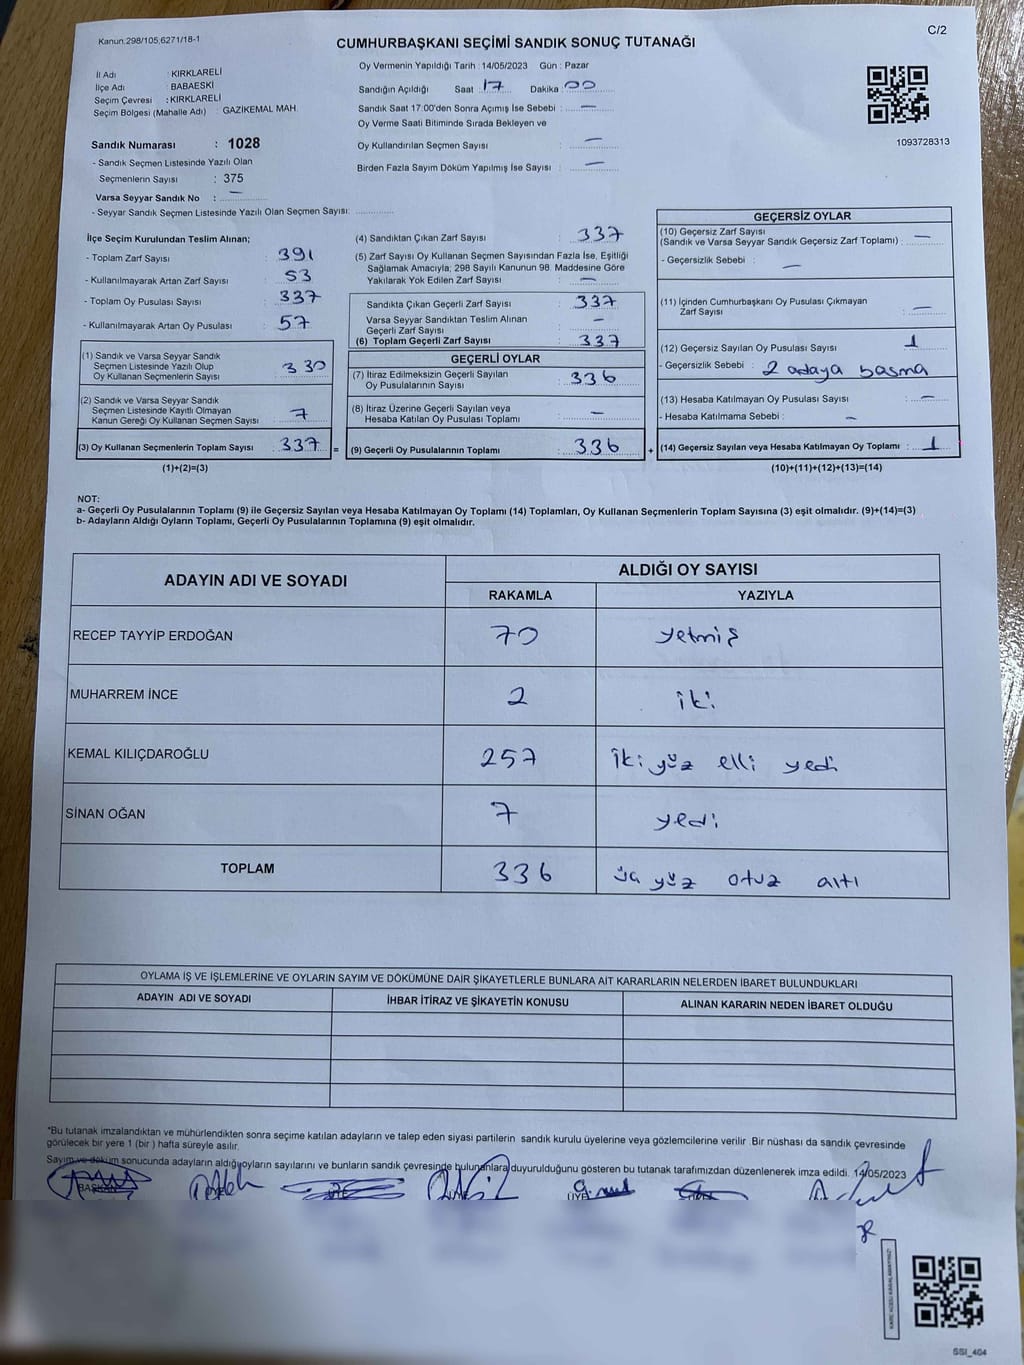 Kanun.298/105,6271/18-1
C/2
CUMHURBAŞKANI SEÇİMİ SANDIK SONUÇ TUTANAĞI
İl Adı : KIRKLARELİ
İlçe Adı : BABAESKİ
Seçim Çevresi : KIRKLARELİ
Seçim Bölgesi (Mahalle Adı) : GAZİKEMAL MAH.
Oy Vermenin Yapıldığı Tarih : 14/05/2023 Gün : Pazar
Sandığın Açıldığı Saat : 17 Dakika : 00
Sandık Saat 17:00'den Sonra Açımış İse Sebebi : —
Oy Verme Saati Bitiminde Sırada Bekleyen ve
Oy Kullandırılan Seçmen Sayısı : —
Birden Fazla Sayım Döküm Yapılmış İse Sayısı : —
1093728313
Sandık Numarası : 1028
- Sandık Seçmen Listesinde Yazılı Olan
Seçmenlerin Sayısı : 375
Varsa Seyyar Sandık No : —
- Seyyar Sandık Seçmen Listesinde Yazılı Olan Seçmen Sayısı: ............
İlçe Seçim Kurulundan Teslim Alınan;
- Toplam Zarf Sayısı : 391
- Kullanılmayarak Artan Zarf Sayısı : 53
- Toplam Oy Pusulası Sayısı : 337
- Kullanılmayarak Artan Oy Pusulası : 57
(1) Sandık ve Varsa Seyyar Sandık
Seçmen Listesinde Yazılı Olup
Oy Kullanan Seçmenlerin Sayısı : 330
(2) Sandık ve Varsa Seyyar Sandık
Seçmen Listesinde Kayıtlı Olmayan
Kanun Gereği Oy Kullanan Seçmen Sayısı : 7
(3) Oy Kullanan Seçmenlerin Toplam Sayısı : 337 =
(1)+(2)=(3)
(4) Sandıktan Çıkan Zarf Sayısı : 337
(5) Zarf Sayısı Oy Kullanan Seçmen Sayısından Fazla İse, Eşitliği
Sağlamak Amacıyla; 298 Sayılı Kanunun 98. Maddesine Göre
Yakılarak Yok Edilen Zarf Sayısı : —
Sandıkta Çıkan Geçerli Zarf Sayısı : 337
Varsa Seyyar Sandıktan Teslim Alınan
Geçerli Zarf Sayısı : —
(6) Toplam Geçerli Zarf Sayısı : 337
GEÇERLİ OYLAR
(7) İtiraz Edilmeksizin Geçerli Sayılan
Oy Pusulalarının Sayısı : 336
(8) İtiraz Üzerine Geçerli Sayılan veya
Hesaba Katılan Oy Pusulası Toplamı : —
(9) Geçerli Oy Pusulalarının Toplamı : 336 +
GEÇERSİZ OYLAR
(10) Geçersiz Zarf Sayısı
(Sandık ve Varsa Seyyar Sandık Geçersiz Zarf Toplamı) : —
- Geçersizlik Sebebi : —
(11) İçinden Cumhurbaşkanı Oy Pusulası Çıkmayan
Zarf Sayısı : —
(12) Geçersiz Sayılan Oy Pusulası Sayısı : 1
- Geçersizlik Sebebi : 2 adaya basma
(13) Hesaba Katılmayan Oy Pusulası Sayısı : —
- Hesaba Katılmama Sebebi : —
(14) Geçersiz Sayılan veya Hesaba Katılmayan Oy Toplamı : 1
(10)+(11)+(12)+(13)=(14)
NOT:
a- Geçerli Oy Pusulalarının Toplamı (9) ile Geçersiz Sayılan veya Hesaba Katılmayan Oy Toplamı (14) Toplamları, Oy Kullanan Seçmenlerin Toplam Sayısına (3) eşit olmalıdır. (9)+(14)=(3)
b- Adayların Aldığı Oyların Toplamı, Geçerli Oy Pusulalarının Toplamına (9) eşit olmalıdır.
ADAYIN ADI VE SOYADI ALDIĞI OY SAYISI
RAKAMLA YAZIYLA
RECEP TAYYİP ERDOĞAN 70 yetmiş
MUHARREM İNCE 2 iki
KEMAL KILIÇDAROĞLU 257 iki yüz elli yedi
SİNAN OĞAN 7 yedi
TOPLAM 336 üç yüz otuz altı
OYLAMA İŞ VE İŞLEMLERİNE VE OYLARIN SAYIM VE DÖKÜMÜNE DAİR ŞİKAYETLERLE BUNLARA AİT KARARLARIN NELERDEN İBARET BULUNDUKLARI
ADAYIN ADI VE SOYADI İHBAR İTİRAZ VE ŞİKAYETİN KONUSU ALINAN KARARIN NEDEN İBARET OLDUĞU
*Bu tutanak imzalandıktan ve mühürlendikten sonra seçime katılan adayların ve talep eden siyasi partilerin sandık kurulu üyelerine veya gözlemcilerine verilir. Bir nüshası da sandık çevresinde
görülecek bir yere 1 (bir ) hafta süreyle asılır.
Sayım ve döküm sonucunda adayların aldığı oyların sayılarını ve bunların sandık çevresinde bulunanlara duyurulduğunu gösteren bu tutanak tarafımızdan düzenlenerek imza edildi. 14/05/2023
BAŞKAN ÜYE ÜYE
SSI_404